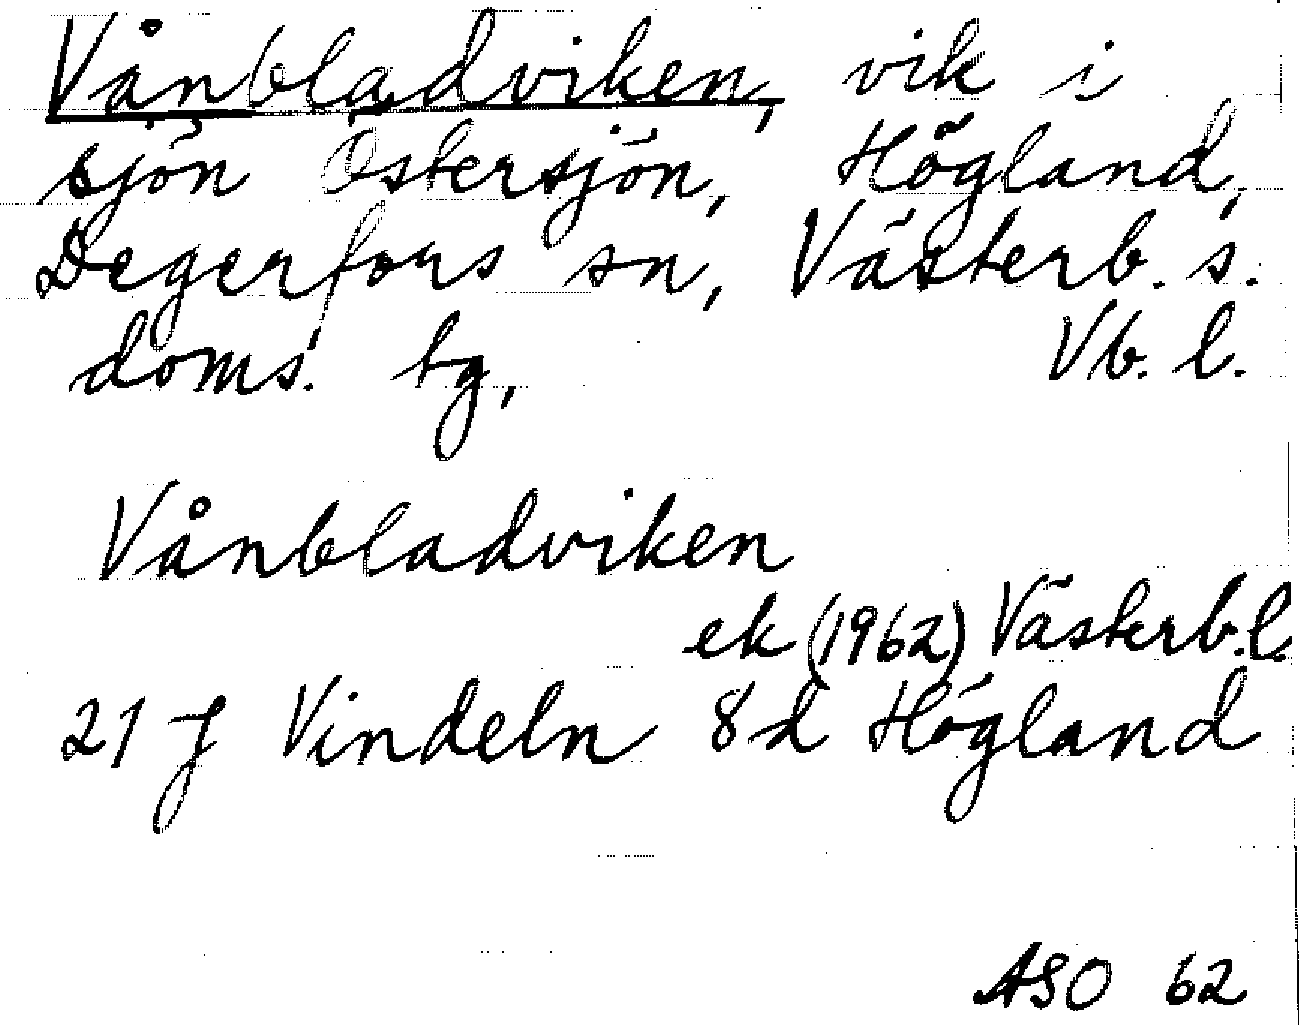 Vånbladviken, vik i
sjön Östersjön, Högland,
Degerfors sn, Västerb. s.
doms. tg, Vb. l.
Vånbladviken
ek (1962) Västerb. l.
21 J Vindeln 8 d Högland
ASO 62